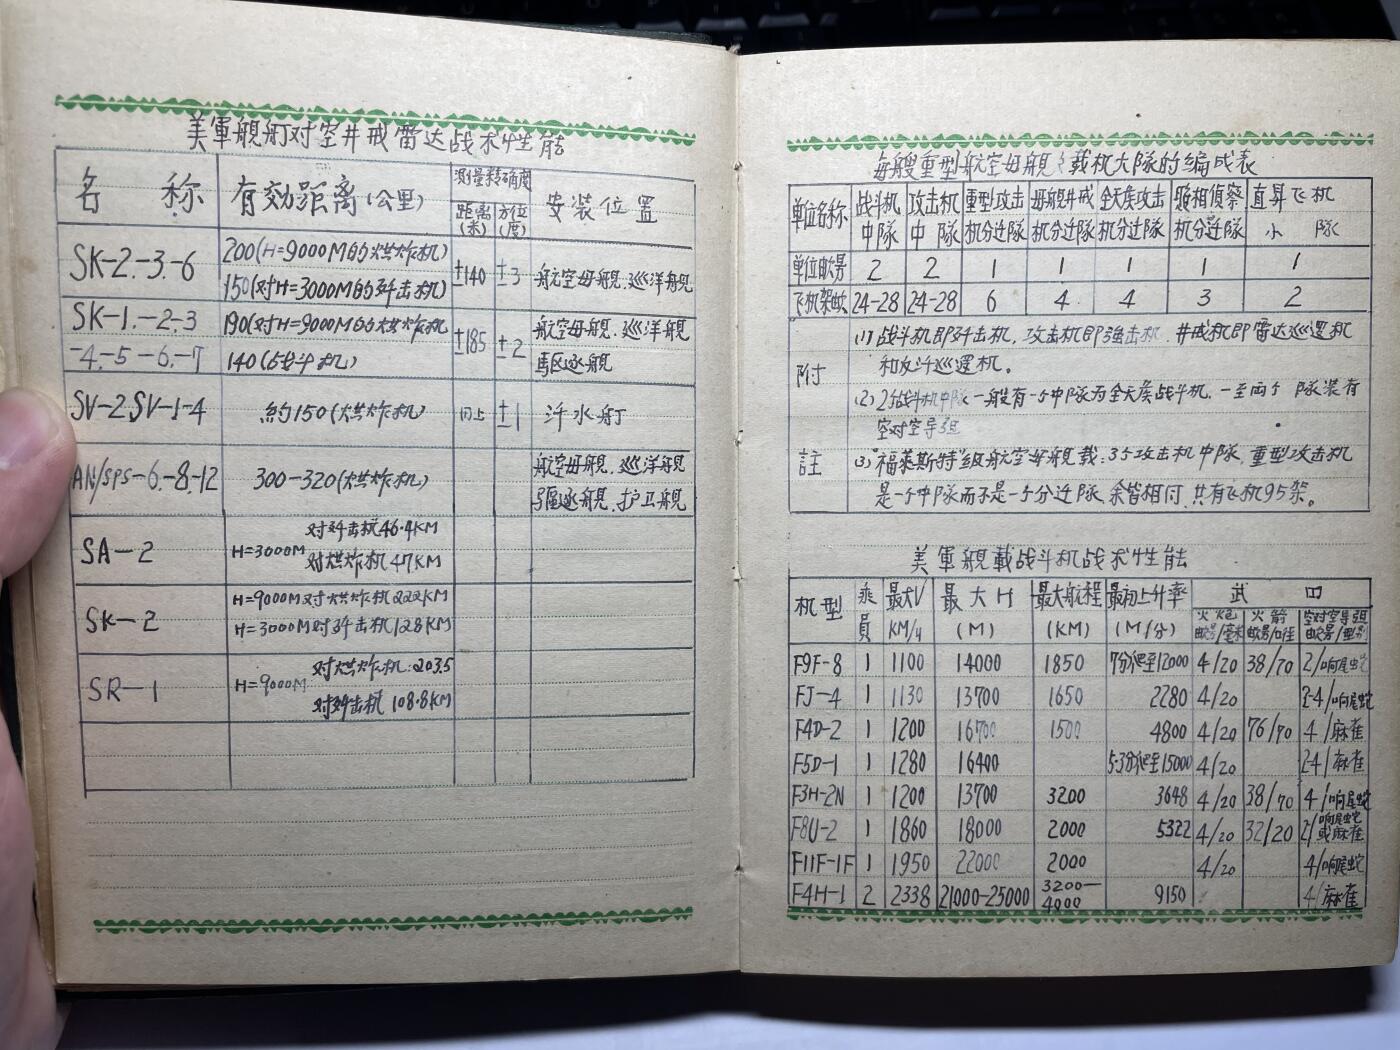 美軍舰船对空井戒雷达战术性能
名 称 有効距离(公里) 測量精确度 安装位置
距离(米) 方位(度)
SK-2.-3.-6 200(H=9000M的烘炸机) ±140 ±3 航空母舰.巡洋舰
150(对H=3000M的歼击机)
SK-1.-2.-3 190(对H=9000M的烘炸机 ±185 ±2 航空母舰.巡洋舰
-4.-5.-6.-7 140(战斗机) 駆逐舰
SV-2.SV-1-4 約150(烘炸机) 同上 ±1 汼水船
AN/SPS-6.-8.-12 300-320(烘炸机) 航空母舰.巡洋舰
驅逐舰.护卫舰
SA-2 H=3000M 对歼击机46.4KM
对烘炸机47KM
SK-2 H=9000M对烘炸机222KM
H=3000M对歼击机128KM
SR-1 H=9000M 对烘炸机:203.5
对歼击机 108.8KM
每艘重型航空母舰 载机大隊的编成表
单位名称 战斗机中隊 攻击机中隊 重型攻击机分迁隊 母舰井戒机分迁隊 全天侯攻击机分迁隊 照相偵察机分迁隊 直昇飞机小隊
单位数号 2 2 1 1 1 1 1
飞机架数 24-28 24-28 6 4 4 3 2
附註
(1) 战斗机即歼击机.攻击机即強击机.井戒机即雷达巡邏机
和反汼巡邏机。
(2) 2个战斗机中隊一般有一个中隊为全天侯战斗机.一至両个 隊装有
空对空导弹
(3) "福莱斯特"级航空母舰载:3个攻击机中隊.重型攻击机
是一个中隊而不是一个分迁隊.余皆相付.共有飞机95架。
美軍舰載战斗机战术性能
机型 乘員 最大V KM/ч 最大H (M) 最大航程 (KM) 最初上升率 (M/分) 武 四
火炮数号/毫米 火箭数号/口径 空对空导弹数号/型别
F9F-8 1 1100 14000 1850 7分爬至12000 4/20 38/70 2/响尾蛇
FJ-4 1 1130 13700 1650 2280 4/20 2-4/响尾蛇
F4D-2 1 1200 16700 1500 4800 4/20 76/70 4/麻雀
F5D-1 1 1280 16400 5.3分爬至15000 4/20 2-4/麻雀
F3H-2N 1 1200 13700 3200 3648 4/20 38/70 4/响尾蛇
F8U-2 1 1860 18000 2000 5322 4/20 32/20 2/响尾蛇或麻雀
F11F-1F 1 1950 22000 2000 4/20 4/响尾蛇
F4H-1 2 2338 21000-25000 3200-4000 9150 4/麻雀